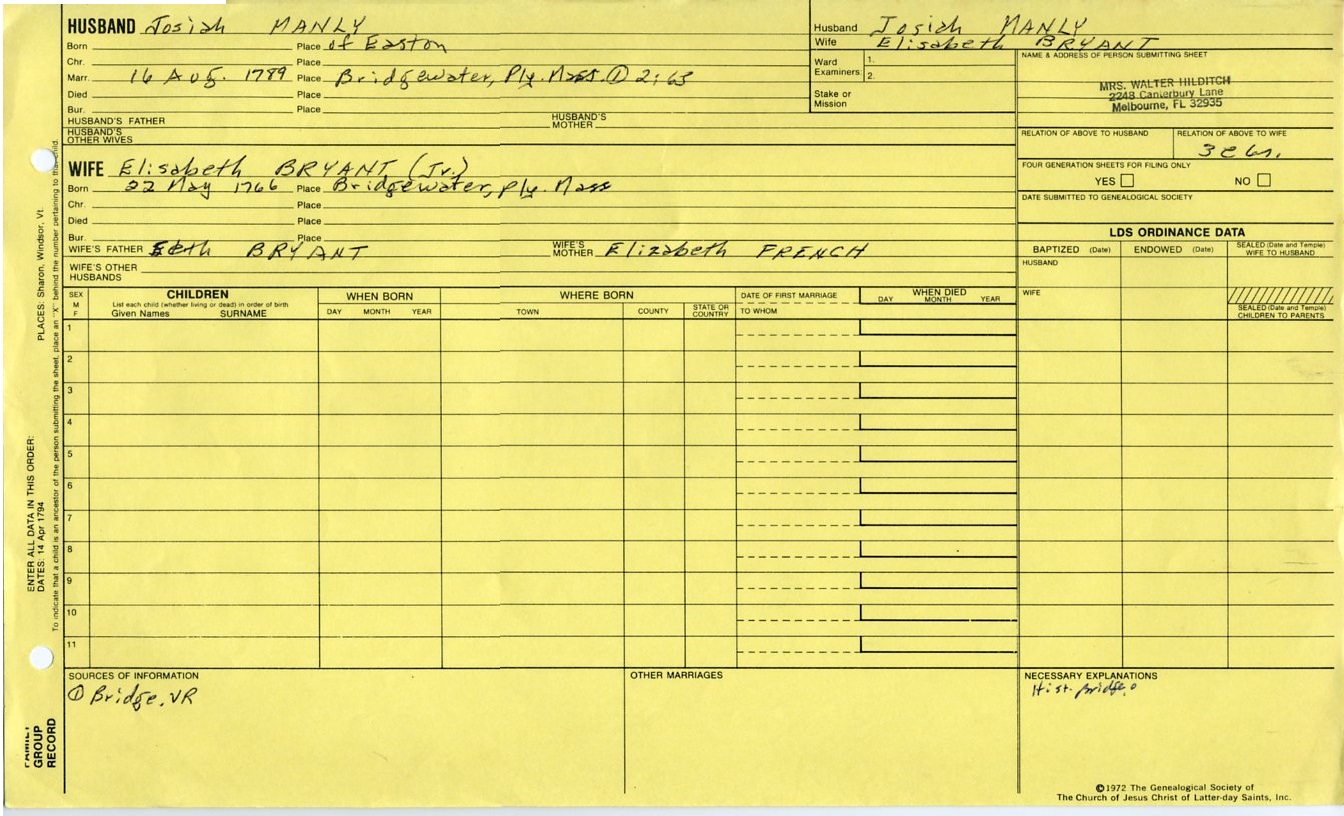 HUSBAND Josiah MANLY
Born Place of Easton
Chr. Place
Marr. 16 Aug. 1789 Place Bridgewater, Ply. Mass. ① 2:63
Died Place
Bur. Place
HUSBAND'S FATHER HUSBAND'S MOTHER
HUSBAND'S OTHER WIVES
WIFE Elisabeth BRYANT (Jr.)
Born 22 May 1766 Place Bridgewater, Ply. Mass
Chr. Place
Died Place
Bur. Place
WIFE'S FATHER Seth BRYANT WIFE'S MOTHER Elizabeth FRENCH
WIFE'S OTHER HUSBANDS
Husband Josiah MANLY
Wife Elisabeth BRYANT
Ward Examiners: 1.
2.
Stake or Mission
NAME & ADDRESS OF PERSON SUBMITTING SHEET
MRS. WALTER HILDITCH
2248 Canterbury Lane
Melbourne, FL 32935
RELATION OF ABOVE TO HUSBAND RELATION OF ABOVE TO WIFE
FOUR GENERATION SHEETS FOR FILING ONLY
YES NO
DATE SUBMITTED TO GENEALOGICAL SOCIETY
LDS ORDINANCE DATA
BAPTIZED (Date) ENDOWED (Date) SEALED (Date and Temple) WIFE TO HUSBAND
HUSBAND
WIFE
SEALED (Date and Temple) CHILDREN TO PARENTS
SEX M F
CHILDREN
List each child (whether living or dead) in order of birth
Given Names SURNAME
WHEN BORN
DAY MONTH YEAR
WHERE BORN
TOWN COUNTY STATE OR COUNTRY
DATE OF FIRST MARRIAGE
TO WHOM
WHEN DIED
DAY MONTH YEAR
1
2
3
4
5
6
7
8
9
10
11
SOURCES OF INFORMATION
① Bridge. VR
OTHER MARRIAGES
NECESSARY EXPLANATIONS
Hist. Bridge.
©1972 The Genealogical Society of
The Church of Jesus Christ of Latter-day Saints, Inc.
FAMILY GROUP RECORD
ENTER ALL DATA IN THIS ORDER:
DATES: 14 Apr 1794 PLACES: Sharon, Windsor, Vt.
To indicate that a child is an ancestor of the person submitting the sheet, place an "X" behind the number pertaining to that child.